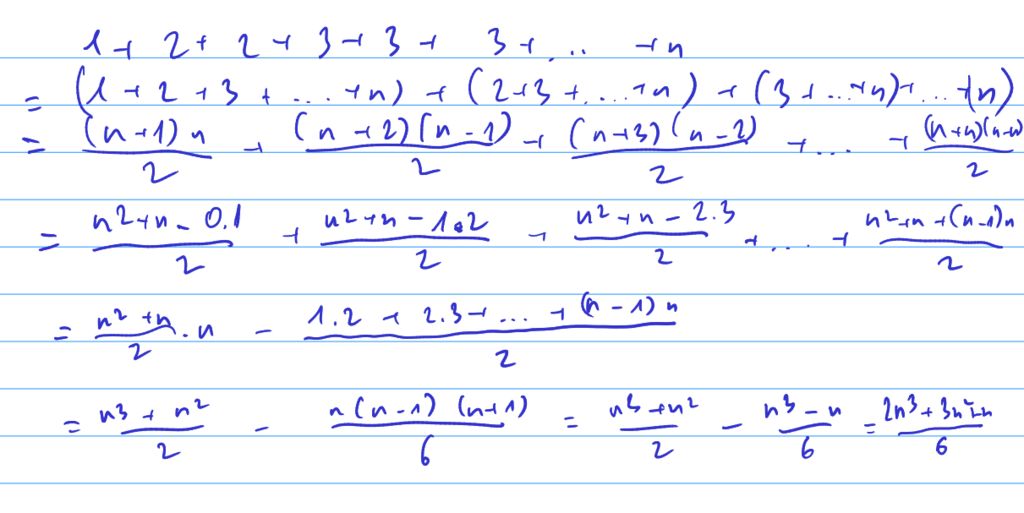 1 + 2 + 2 + 3 + 3 + 3 + ... + n
= (1 + 2 + 3 + ... + n) + (2 + 3 + ... + n) + (3 + ... + n) + ... + (n)
= (n+1)n/2 + (n+2)(n-1)/2 + (n+3)(n-2)/2 + ... + (n+n)(n-n)/2
= n²+n-0.1/2 + n²+n-1.2/2 + n²+n-2.3/2 + ... + n²+n+(n-1)n/2
= n²+n/2 . n - 1.2 + 2.3 + ... + (n-1)n/2
= n³+n²/2 - n(n-1)(n+1)/6 = n³+n²/2 - n³-n/6 = 2n³+3n²+n/6